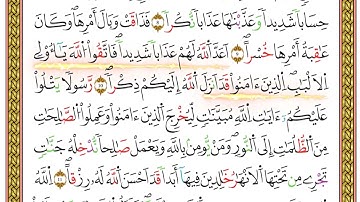 حِسَابًا شَدِيدًا وَعَذَّبْنَٰهَا عَذَابًا نُّكْرًا ۝٨ فَذَاقَتْ وَبَالَ أَمْرِهَا وَكَانَ
عَٰقِبَةُ أَمْرِهَا خُسْرًا ۝٩ أَعَدَّ ٱللَّهُ لَهُمْ عَذَابًا شَدِيدًا فَٱتَّقُوا۟ ٱللَّهَ يَٰٓأُو۟لِى
ٱلْأَلْبَٰبِ ٱلَّذِينَ ءَامَنُوا۟ قَدْ أَنزَلَ ٱللَّهُ إِلَيْكُمْ ذِكْرًا ۝١٠ رَّسُولًا يَتْلُوا۟
عَلَيْكُمْ ءَايَٰتِ ٱللَّهِ مُبَيِّنَٰتٍ لِّيُخْرِجَ ٱلَّذِينَ ءَامَنُوا۟ وَعَمِلُوا۟ ٱلصَّٰلِحَٰتِ
مِنَ ٱلظُّلُمَٰتِ إِلَى ٱلنُّورِ وَمَن يُؤْمِنۢ بِٱللَّهِ وَيَعْمَلْ صَٰلِحًا نُدْخِلْهُ جَنَّٰتٍ
تَجْرِى مِن تَحْتِهَا ٱلْأَنْهَٰرُ خَٰلِدِينَ فِيهَآ أَبَدًا قَدْ أَحْسَنَ ٱللَّهُ لَهُۥ رِزْقًا ۝١١ ٱللَّهُ